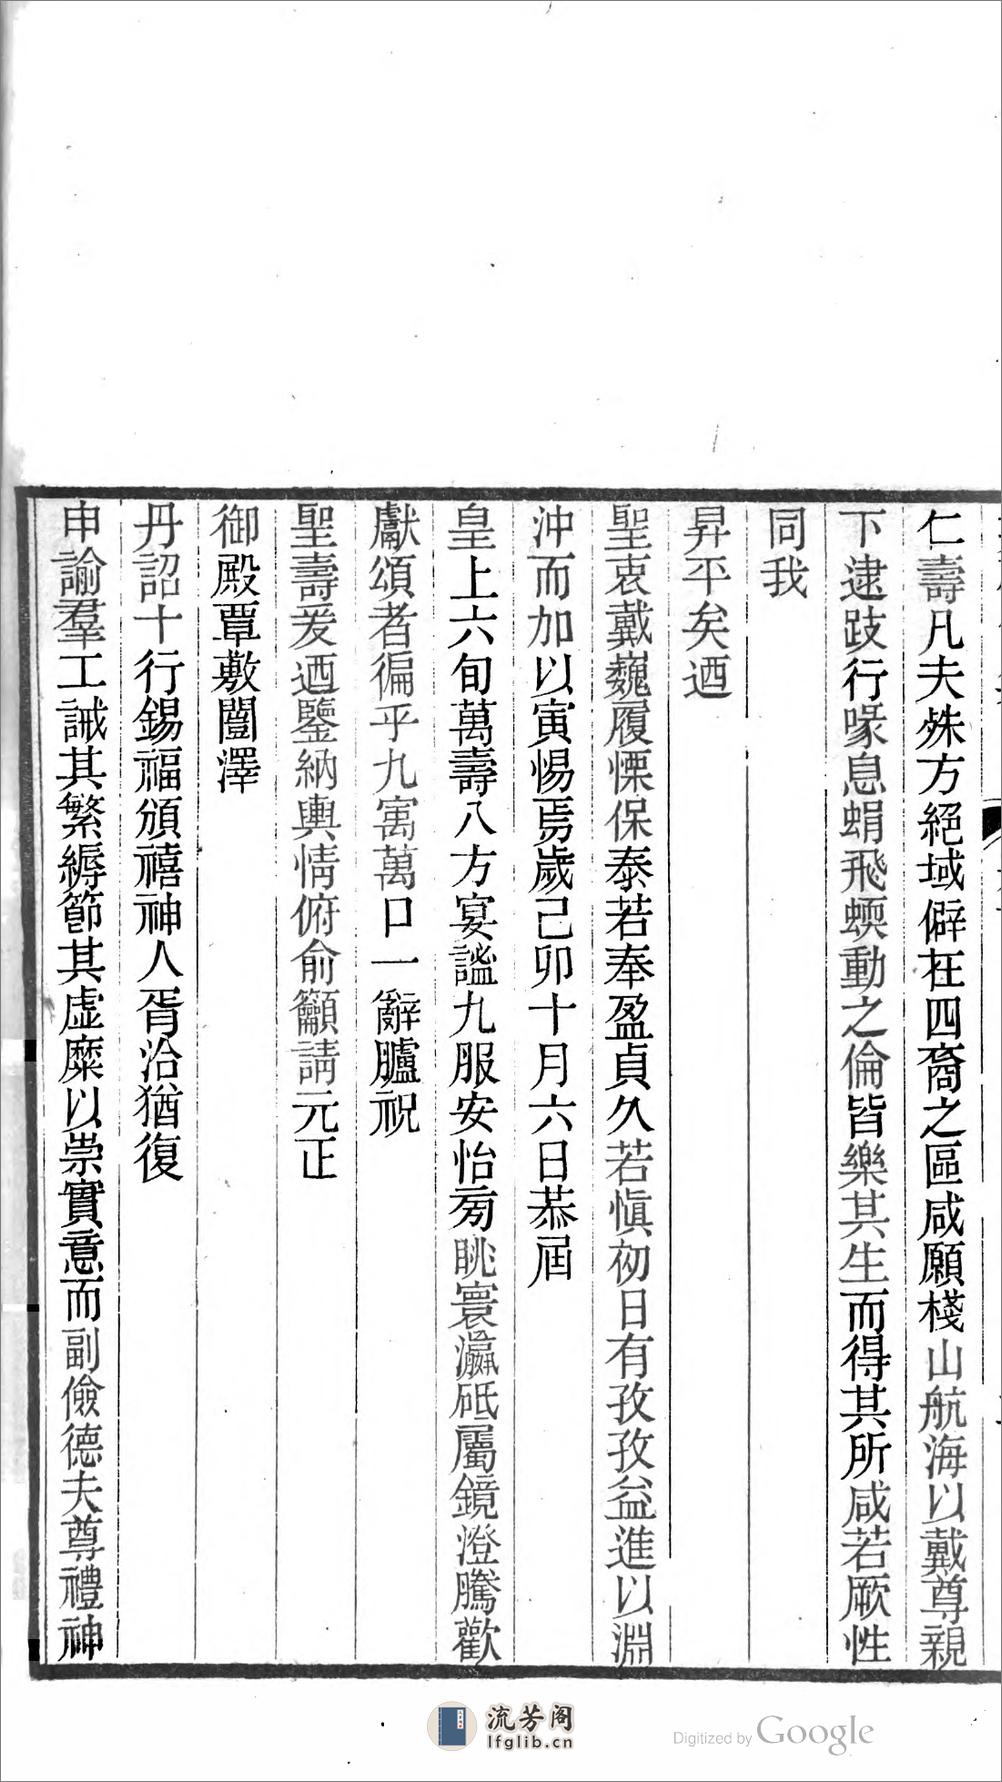 仁壽凡夫殊方絕域僻在四裔之區咸願棧山航海以戴尊親
下逮跂行喙息蜎飛蝡動之倫皆樂其生而得其所咸若厥性
同我
昇平矣迺
聖衷戴巍履慄保泰若奉盈貞久若愼初日有孜孜益進以淵
沖而加以寅惕焉歲己卯十月六日恭屆
皇上六旬萬壽八方宴謐九服安怡旁眺寰瀛砥屬鏡澄騰歡
獻頌者徧乎九寓萬口一辭臚祝
聖壽爰迺鑒納輿情俯俞籲請元正
御殿覃敷闓澤
丹詔十行錫福頒禧神人胥洽猶復
申諭羣工誡其繁縟節其虛糜以崇實意而副儉德夫尊禮神
流芳阁
lfglib.cn
Digitized by Google